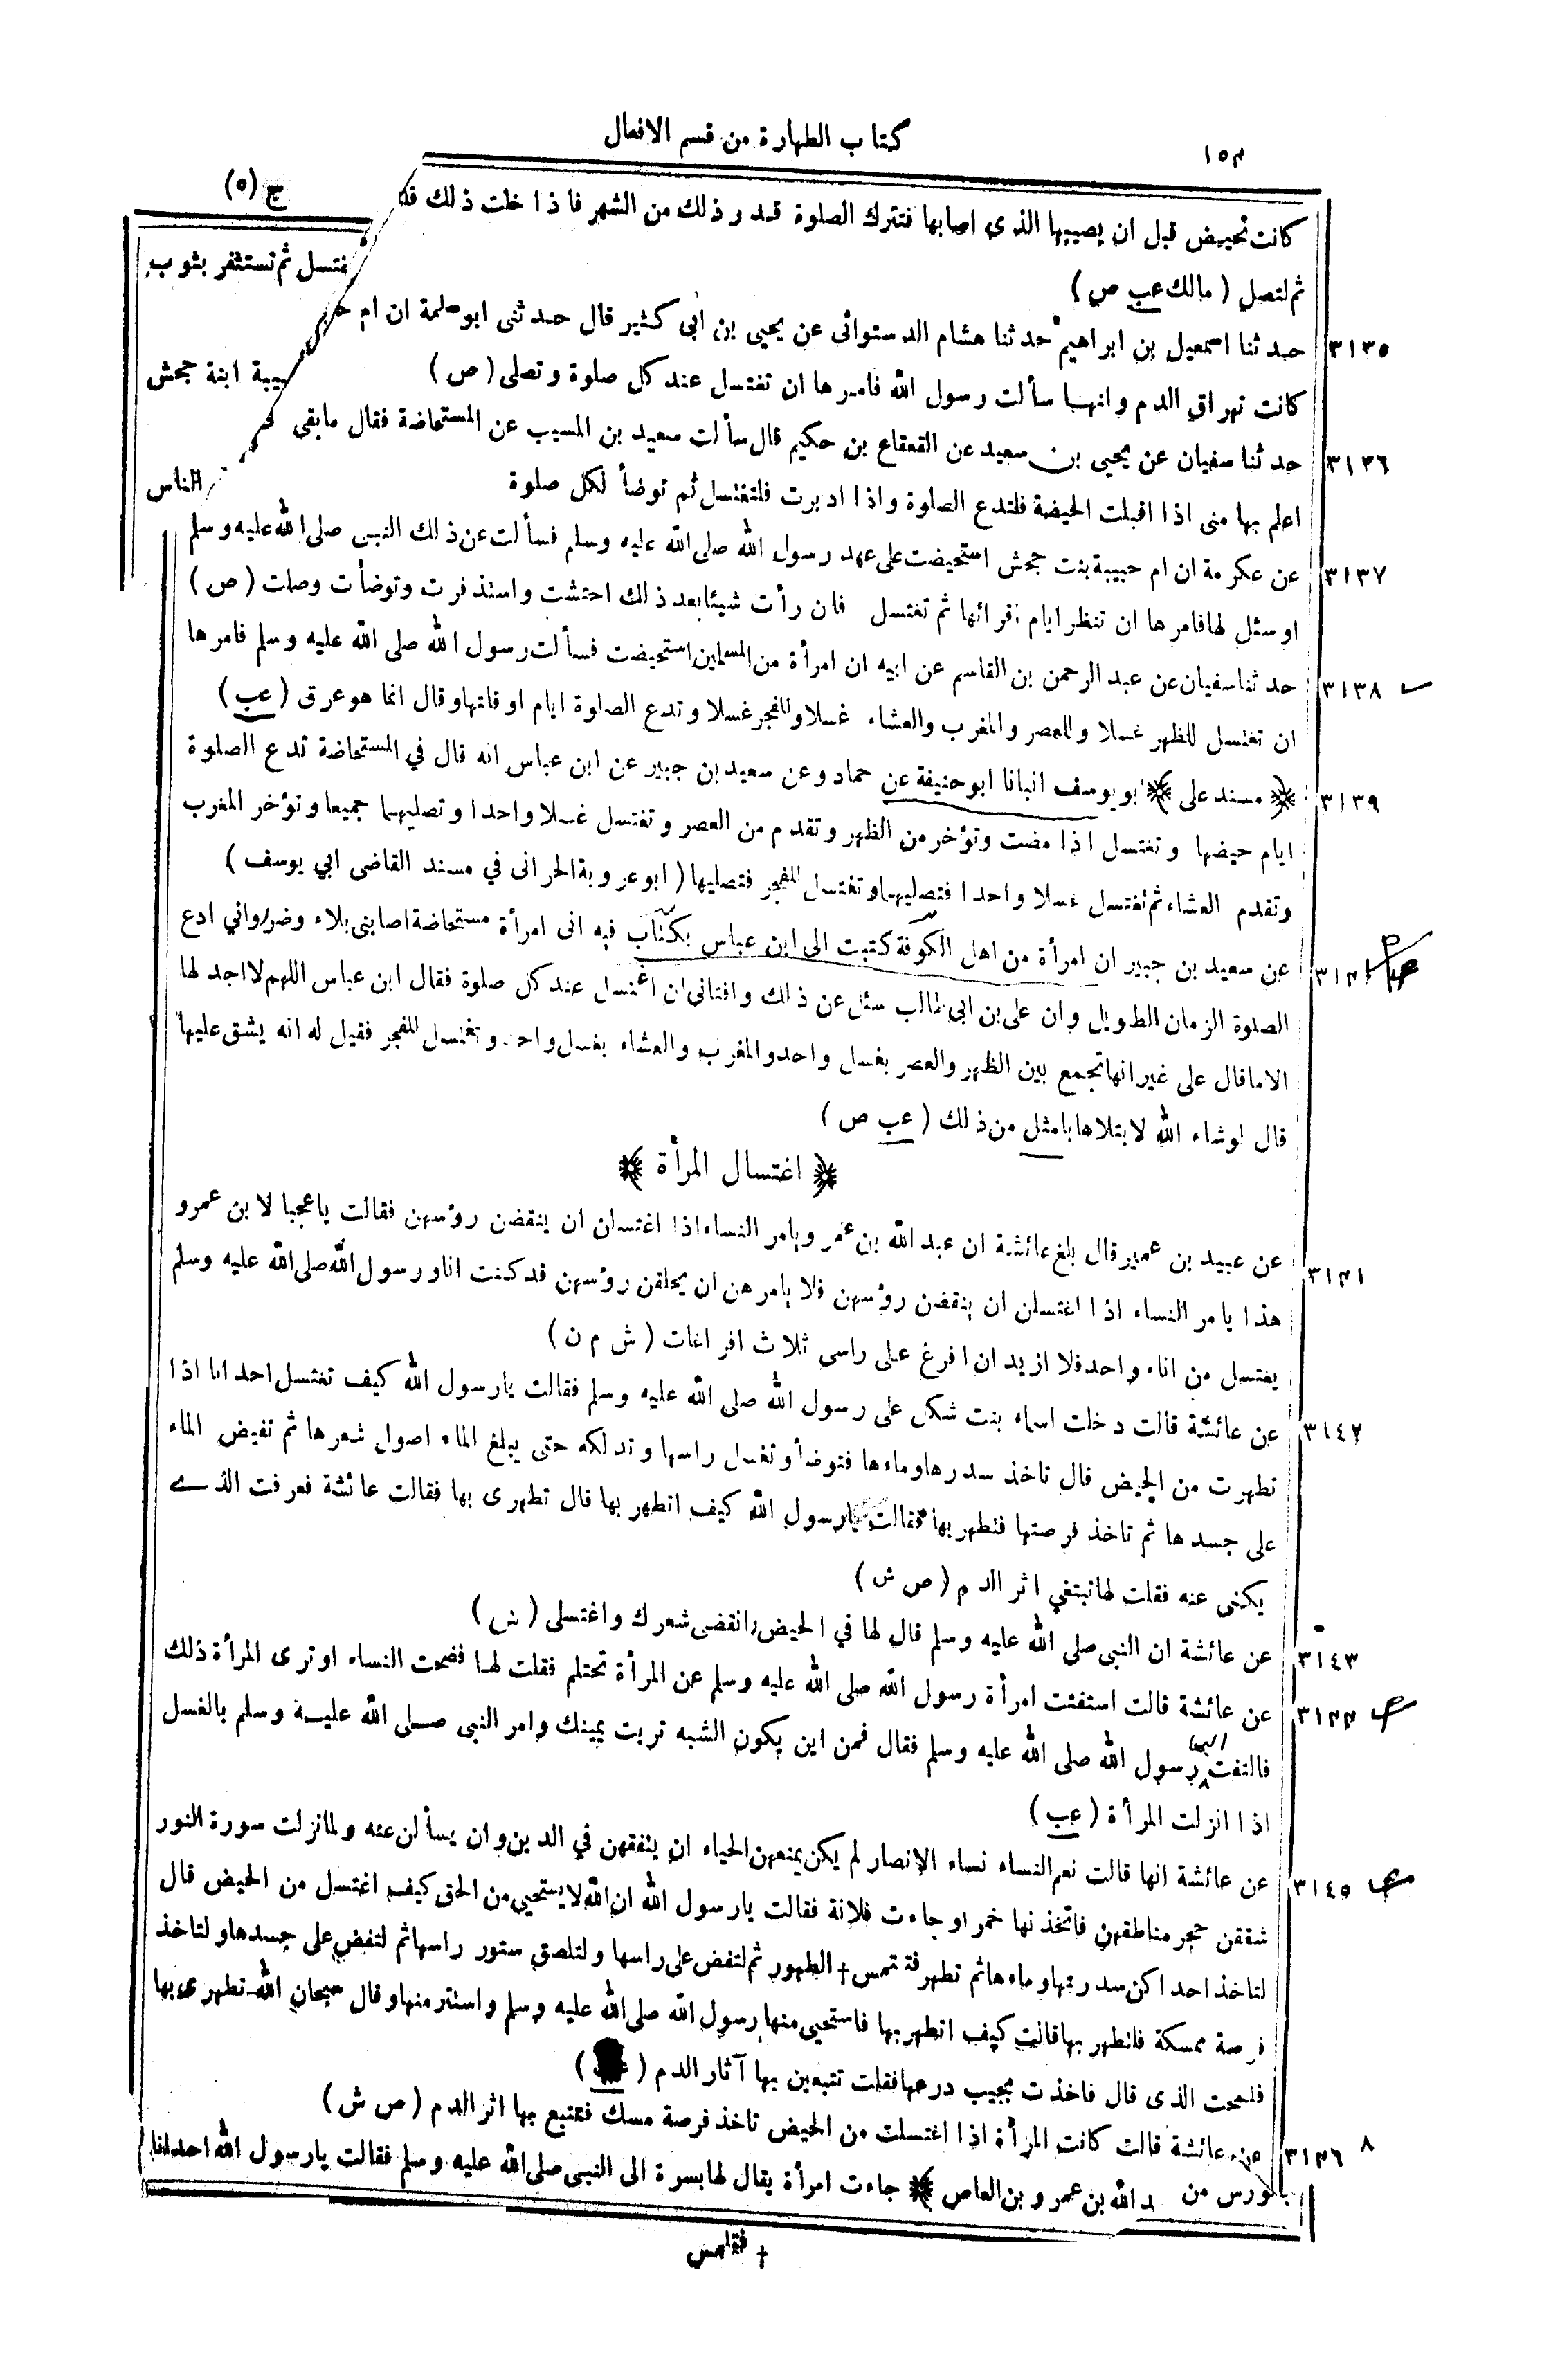 ١٥٤
كتاب الطهارة من قسم الافعال
ج (٥)
كانت تحيض قبل ان يصيبها الذى اصابها فتترك الصلوة قدر ذلك من الشهر فاذا خلت ذلك فلتغتسل ثم تستثفر بثوب
ثم لتصل ( مالك عب ص )
٣١٣٥ حدثنا اسمعيل بن ابراهيم حدثنا هشام الدستوائى عن يحيى بن ابى كثير قال حدثنى ابو سلمة ان ام حبيبة ابنة جحش
كانت تهراق الدم وانها سألت رسول الله فامرها ان تغتسل عند كل صلوة وتصلى ( ص )
٣١٣٦ حدثنا سفيان عن يحيى بن سعيد عن القعقاع بن حكيم قال سألت سعيد بن المسيب عن المستحاضة فقال مابقى الناس
اعلم بها منى اذا اقبلت الحيضة فلتدع الصلوة واذا ادبرت فلتغتسل ثم توضأ لكل صلوة
٣١٣٧ عن عكرمة ان ام حبيبة بنت جحش استحيضت على عهد رسول الله صلى الله عليه وسلم فسألت عن ذلك النبى صلى الله عليه وسلم
اوسئل لها فامرها ان تنظر ايام اقرائها ثم تغتسل فان رأت شيئا بعد ذلك احتشت واستذفرت وتوضأت وصلت ( ص )
٣١٣٨ حدثنا سفيان عن عبد الرحمن بن القاسم عن ابيه ان امرأة من المسلمين استحيضت فسألت رسول الله صلى الله عليه وسلم فامرها
ان تغتسل للظهر غسلا وللعصر والمغرب والعشاء غسلا وللفجر غسلا وتدع الصلوة ايام اوقاتها وقال انما هو عرق ( عب )
٣١٣٩ ﴿ مسند على ﴾ ابو يوسف انبانا ابو حنيفة عن حماد وعن سعيد بن جبير عن ابن عباس انه قال في المستحاضة تدع الصلوة
ايام حيضها وتغتسل اذا مضت وتؤخر من الظهر وتقدم من العصر وتغتسل غسلا واحدا وتصليهما جميعا وتؤخر المغرب
وتقدم العشاء ثم تغتسل غسلا واحدا فتصليهما وتغتسل للفجر فتصليها ( ابو عروبة الحرانى في مسند القاضى ابي يوسف )
٣١٤٠ عن سعيد بن جبير ان امرأة من اهل الكوفة كتبت الى ابن عباس بكتاب فيه انى امرأة مستحاضة اصابنى بلاء وضر وانى ادع
الصلوة الزمان الطويل وان على بن ابي طالب سئل عن ذلك وافتانى ان اغتسل عند كل صلوة فقال ابن عباس اللهم لا اجد لها
الا ماقال على غير انها تجمع بين الظهر والعصر بغسل واحد والمغرب والعشاء بغسل واحد وتغتسل للفجر فقيل له انه يشق عليها
قال لو شاء الله لابتلاها بامثل من ذلك ( عب ص )
﴿ اغتسال المرأة ﴾
٣١٤١ عن عبيد بن عمير قال بلغ عائشة ان عبد الله بن عمر ويامر النساء اذا اغتسلن ان ينقضن رؤسهن فقالت ياعجبا لابن عمرو
هذا يامر النساء اذا اغتسلن ان ينقضن رؤسهن فلا يامرهن ان يحلقن رؤسهن قد كنت انا ورسول الله صلى الله عليه وسلم
يغتسل من اناء واحد فلا ازيد ان افرغ على راسى ثلاث افراغات ( ش م ن )
٣١٤٢ عن عائشة قالت دخلت اسماء بنت شكل على رسول الله صلى الله عليه وسلم فقالت يارسول الله كيف تغتسل احدانا اذا
تطهرت من الحيض قال تاخذ سدرها وماءها فتوضأ وتغسل راسها وتدلكه حتى يبلغ الماء اصول شعرها ثم تفيض الماء
على جسدها ثم تاخذ فرصتها فتطهر بها فقالت يارسول الله كيف اتطهر بها قال تطهرى بها فقالت عائشة فعرفت الذے
يكنى عنه فقلت لها تبتغي اثر الدم ( ص ش )
٣١٤٣ عن عائشة ان النبى صلى الله عليه وسلم قال لها في الحيض انقضى شعرك واغتسلى ( ش )
٣١٤٤ عن عائشة قالت استفتت امرأة رسول الله صلى الله عليه وسلم عن المرأة تحتلم فقلت لها فضحت النساء اوترى المرأة ذلك
فالتفت اليها رسول الله صلى الله عليه وسلم فقال فمن اين يكون الشبه تربت يمينك وامر النبى صلى الله عليه وسلم بالغسل
اذا انزلت المرأة ( عب )
٣١٤٥ عن عائشة انها قالت نعم النساء نساء الانصار لم يكن يمنعهن الحياء ان يتفقهن في الدين وان يسألن عنه ولما نزلت سورة النور
شققن حجر مناطقهن فاتخذنها خمرا وجاءت فلانة فقالت يارسول الله ان الله لا يستحيى من الحق كيف اغتسل من الحيض قال
لتاخذ احداكن سدرتها وماءها ثم تطهر فتتمس † الطهور ثم لتفض على راسها ولتلصق ستور راسها ثم لتفض على جسدها ولتاخذ
فرصة ممسكة فلتطهر بها قالت كيف اتطهر بها فاستحيى منها رسول الله صلى الله عليه وسلم واستتر منها وقال سبحان الله تطهرى بها
فلمحت الذى قال فاخذت بجيب درعها فقلت تتبعين بها آثار الدم
٣١٤٦ عن عائشة قالت كانت المرأة اذا اغتسلت من الحيض تاخذ فرصة مسك فتتبع بها اثر الدم ( ص ش )
د الله بن عمرو بن العاص ﴾ جاءت امرأة يقال لها بسرة الى النبى صلى الله عليه وسلم فقالت يارسول الله احدانا
بالورس من
† فتغامس